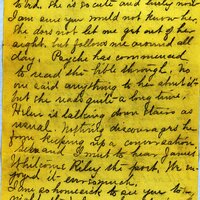 to bed. She is so cute and
I am sure you would not know her.
She does not let me get out of her
sight, but follows me around all
day. Psyche has commenced
to read the bible through, no
one said anything to her about it
but she reads quite a long time.
Helen is talking down stairs as
usual. Nothing discourages her
from keeping up a conversation
and I went to hear James
Whitcomb Riley the poet, We en-
joyed it very much,
I am so homesick to see you to-
night